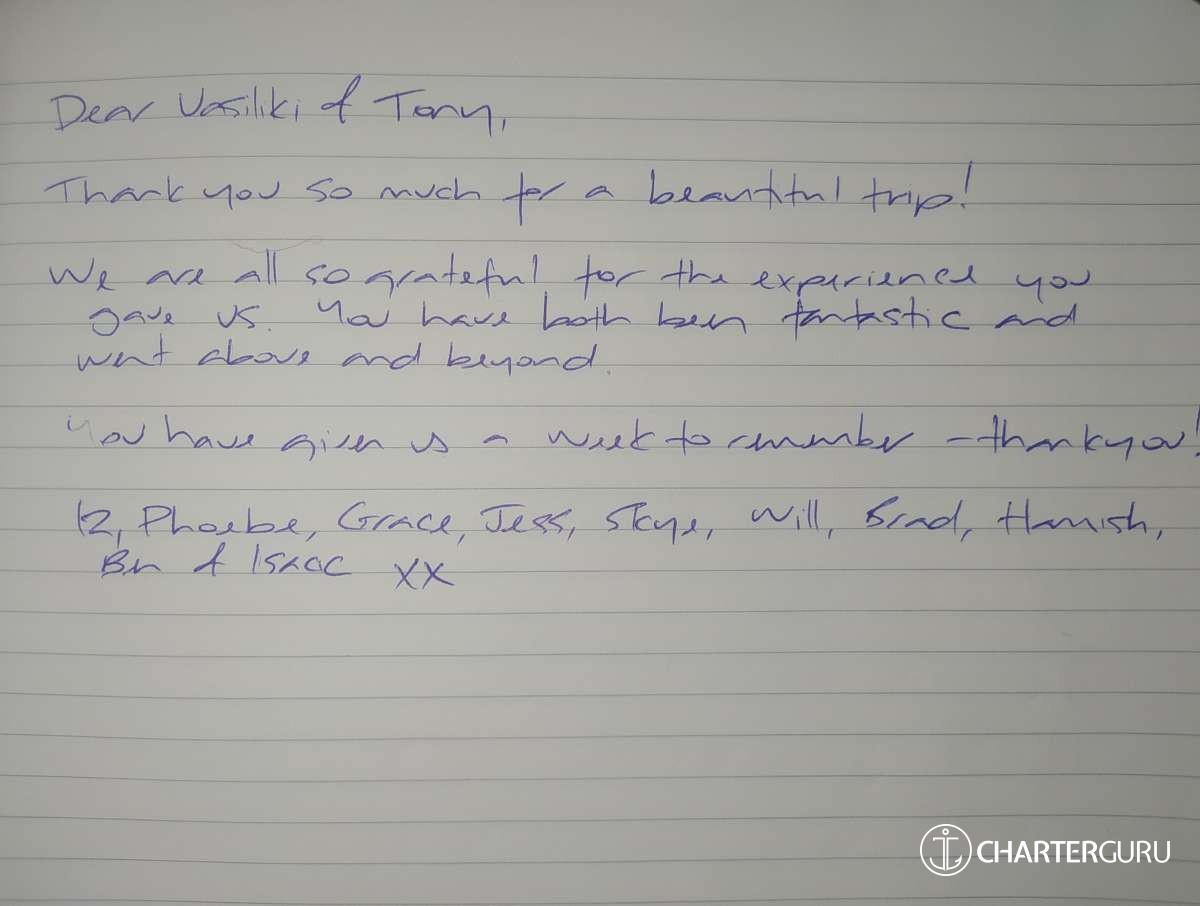 Dear Vasiliki & Tony,
Thank you so much for a beautiful trip!
We are all so grateful for the experience you
gave us. You have both been fantastic and
went above and beyond.
You have given us a week to remember - thankyou!
Phoebe, Grace, Jess, Skye, Will, Brad, Hamish,
Ben & Isaac xx
CHARTERGURU